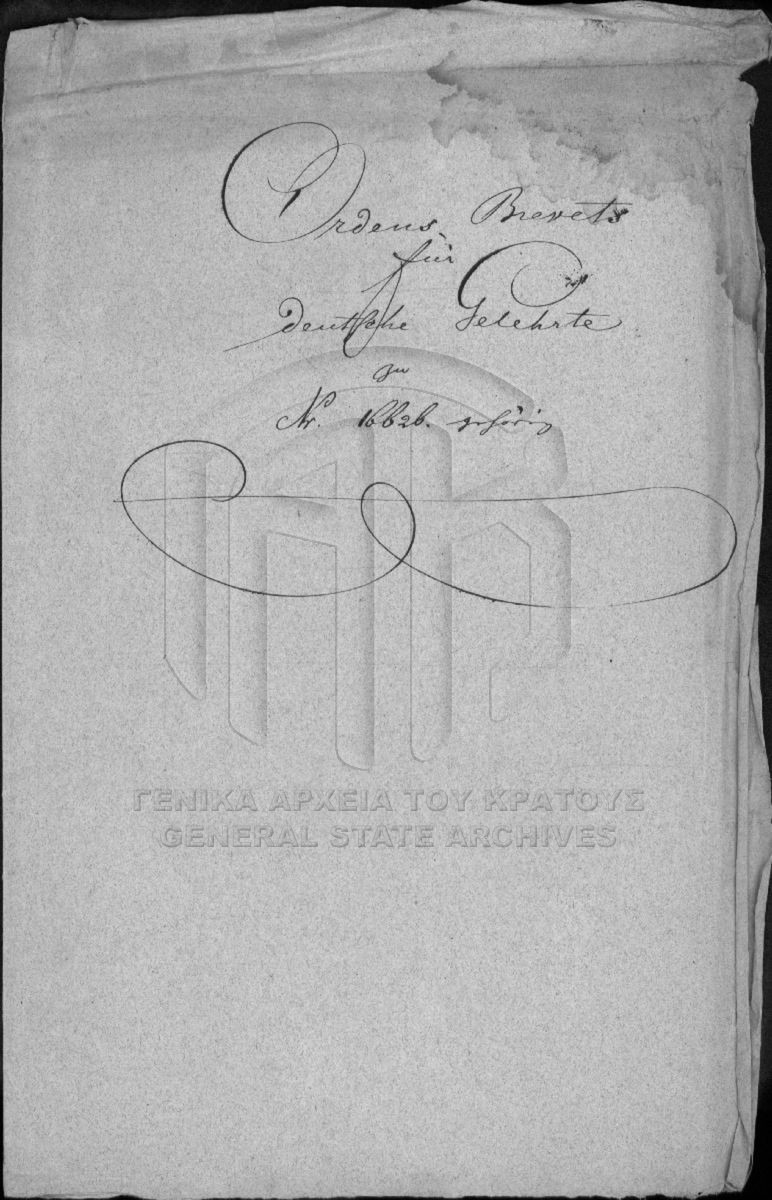 Ordens-Brevets
für
deutsche Gelehrte
zu
Nr. 16626. gehörig
ΓΕΝΙΚΑ ΑΡΧΕΙΑ ΤΟΥ ΚΡΑΤΟΥΣ
GENERAL STATE ARCHIVES